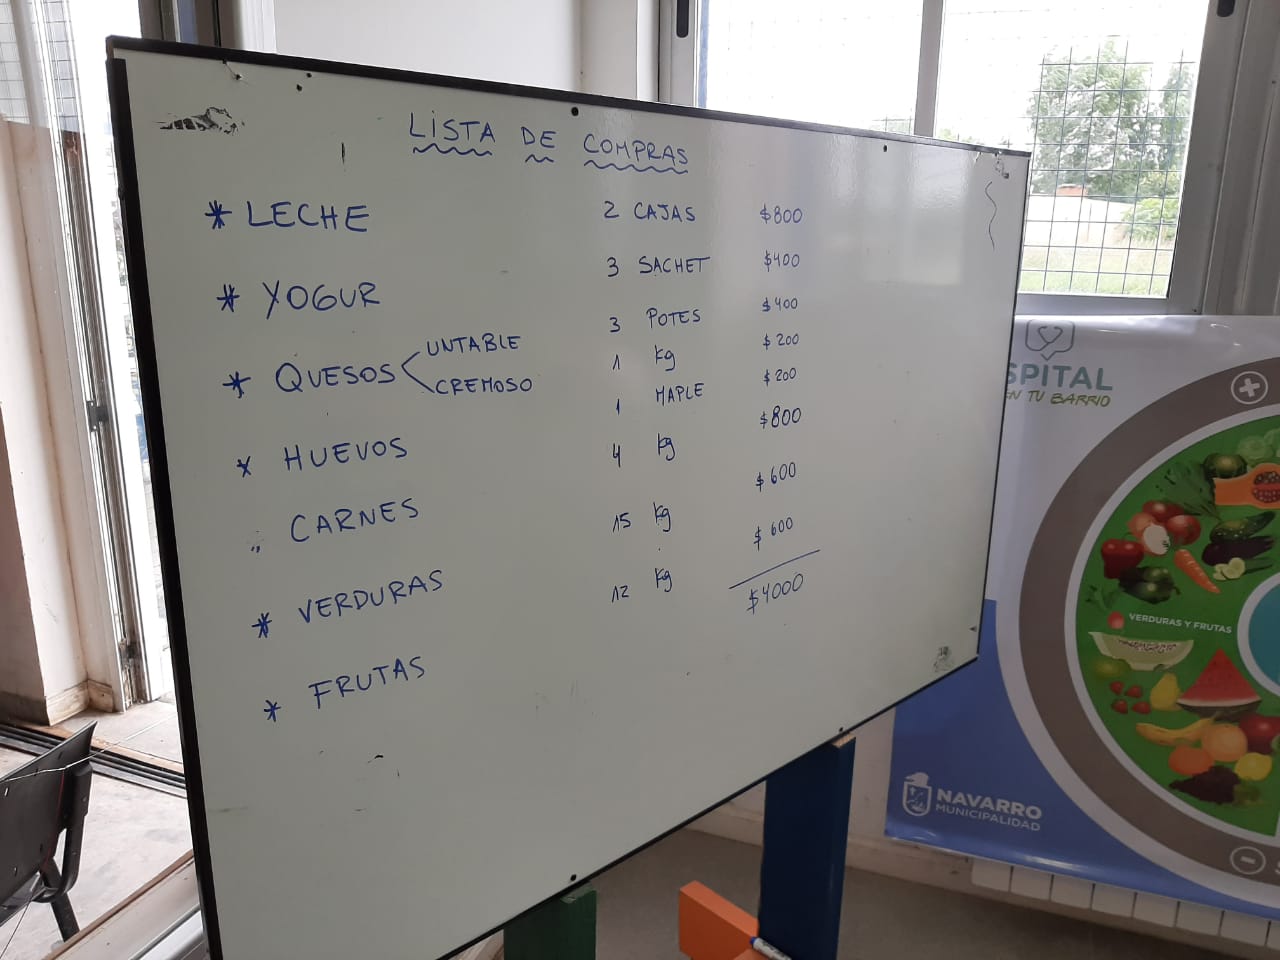 LISTA DE COMPRAS
* LECHE 2 CAJAS $800
* YOGUR 3 SACHET $400
* QUESOS UNTABLE 3 POTES $400
CREMOSO 1 Kg $200
* HUEVOS 1 MAPLE $200
" CARNES 4 Kg $800
* VERDURAS 15 Kg $600
* FRUTAS 12 Kg $600
$4000
SPITAL
EN TU BARRIO
VERDURAS Y FRUTAS
NAVARRO
MUNICIPALIDAD